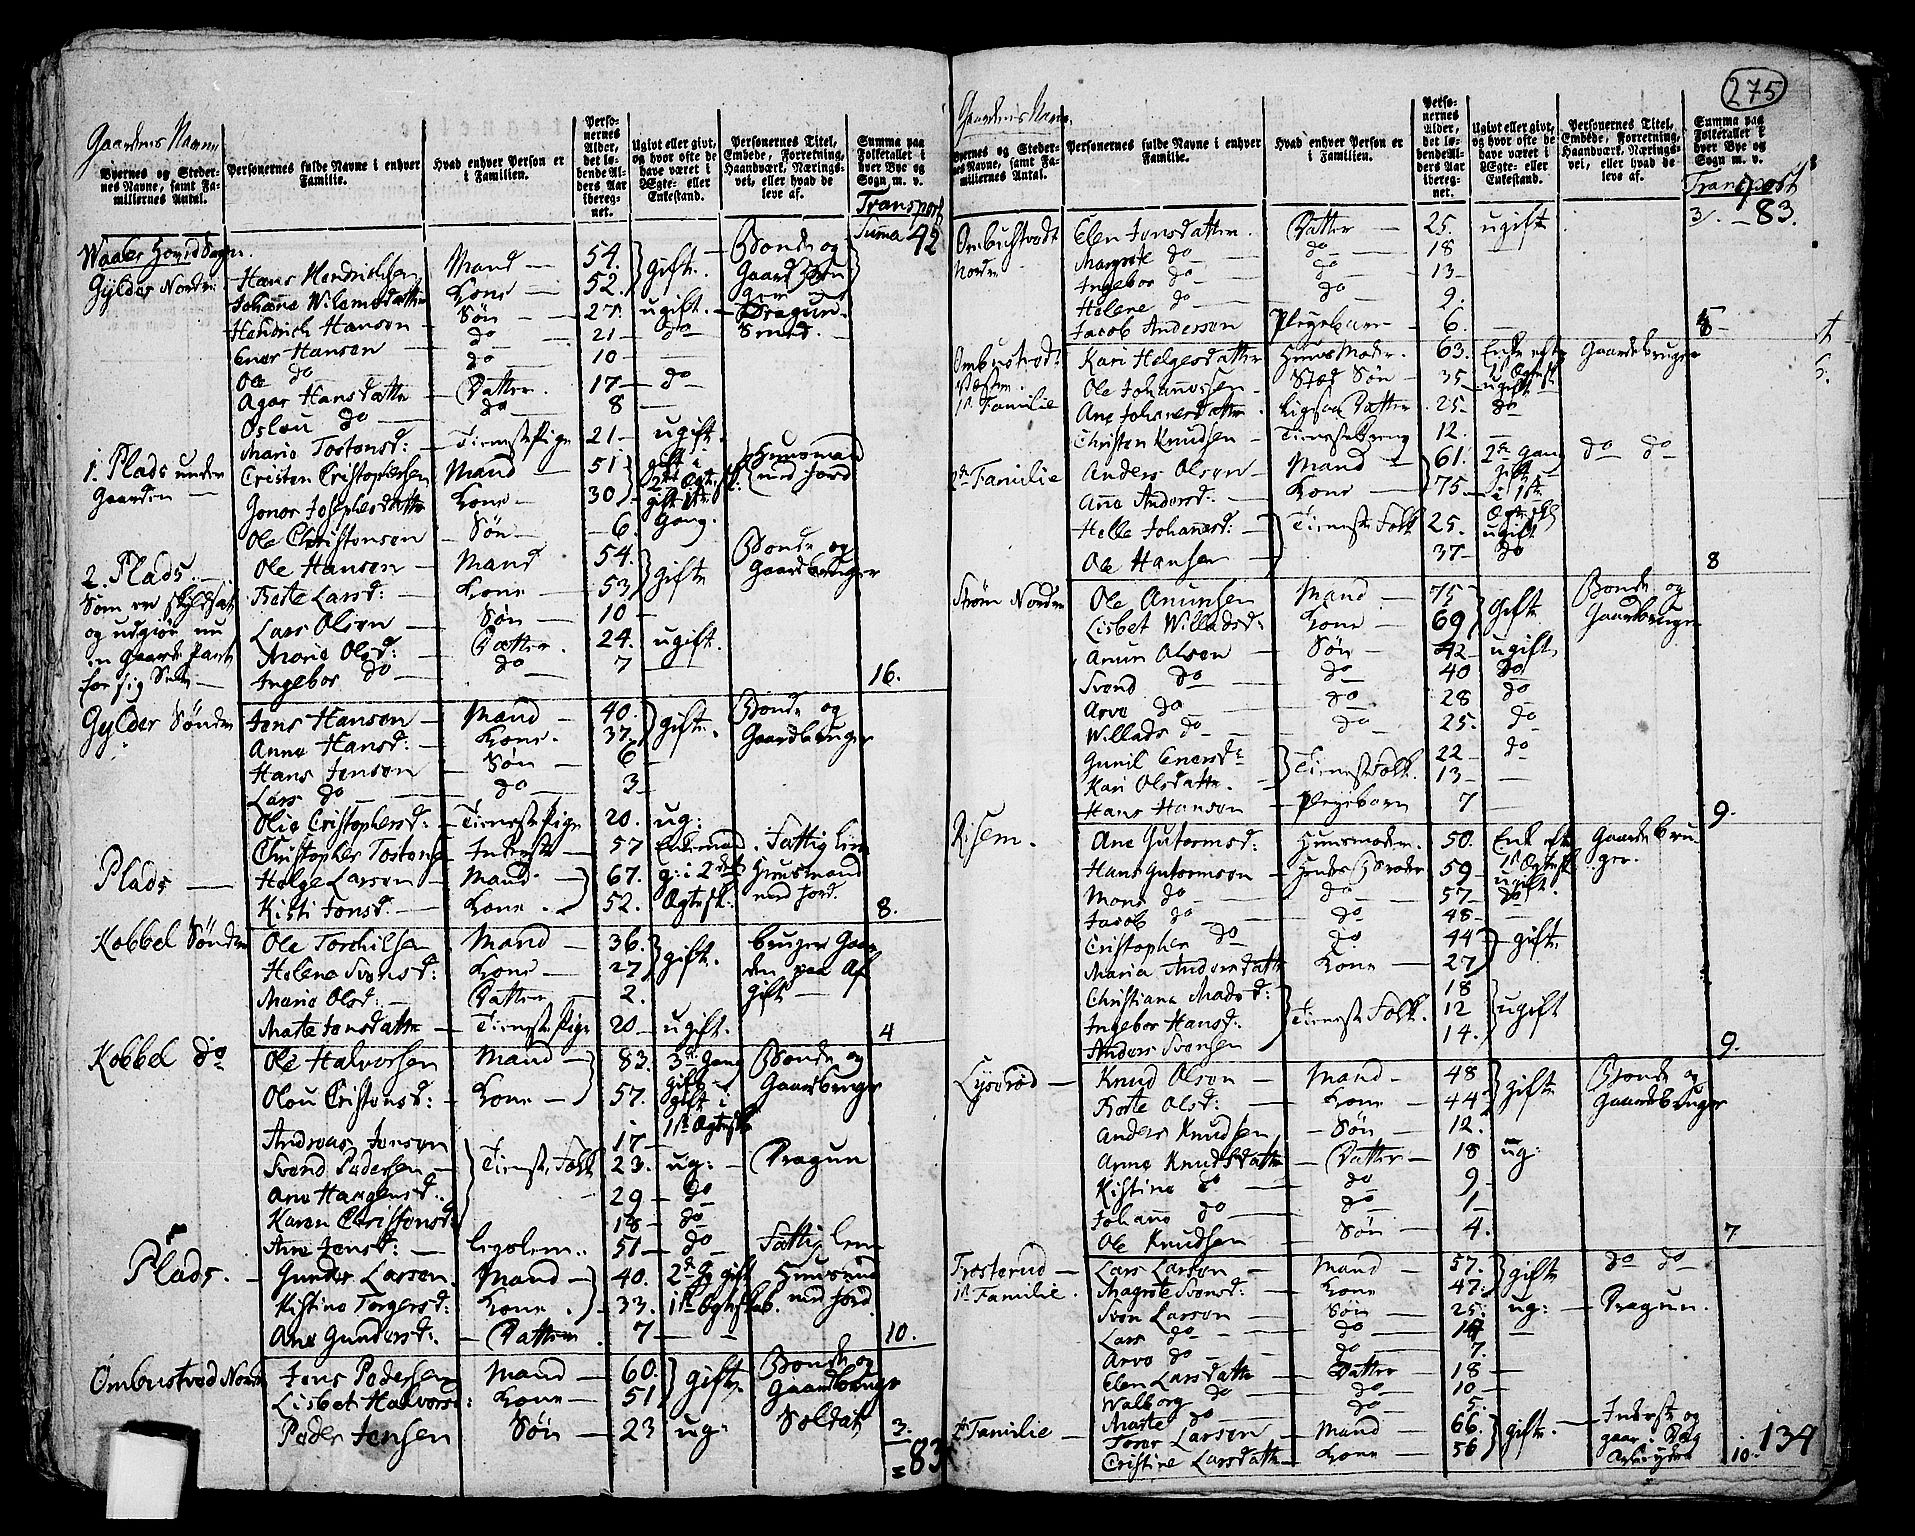 Gaardens Navne
Byernes og Stedernes Navne, samt Familiernes Antal.
Personernes fulde Navne i enhver Familie.
Hvad enhver Person er i Familien.
Personernes Alder, det løbende Alders Aar iberegnet.
Ugivt eller givt, og hvor ofte de have været i Ægte- eller Enkestand.
Personernes Titel, Embede, Forretning, Haandværk, Næringsvei, eller hvad de leve af.
Summa paa Folketallet i hver Bye og Sogn m. v.
Transport
Summa 42
Waaler Hovid Sogn
Gylder Nordre
Hans Hendrichsen Mand 54. gift. Bonde og
Johanna Wilamsdatter Kone 52.
Hendrich Hansen Søn 27. ugift. Dragun
Ener Hansen do 21 do
Ole do do 10
Agar Hansdatter Datter. 17 do
Oslou do do 8
Marie Tostensd: Tieneste Pige 21 ugift.
1. Plads under Gaarden
Cristen Cristophersen Mand 51 Huusmand med Jord
Gonor Josephsdatter Kone 30
Ole Christensen Søn 6.
2. Plads.
Som er skyldsat
og udgiør nu
en Gaarde Part
for sig Selv
Ole Hansen Mand 54. gifte Bonde og Gaardbruger
Berte Larsd: Kone 53
Lars Olsen Søn 10
Marie Olsd: Datter. 24. ugift.
Ingebor do do 7
16.
Gylder Søndre
Jens Hansen Mand 40. gifte. Bonde og Gaardbruger
Anne Hansd: Kone. 37
Hans Jensen Søn 6
Lars do do 3
Olia Cristophersd: Tieneste Pige 20. ug:
Christopher Tostensen Inderste 57 Enkemand. Fattig lem
Plads
Helge Larsen Mand 67. g: i 2det Ægtesk: Huusmand med Jord.
Kisti Jensd. Kone. 52.
8.
Kobbel Søndre
Ole Torchilsen Mand 36. gift. bruger Gaarden paa Afgift
Helena Svensd: Kone 27
Marie Olsd: Datter 2.
Marte Jensdatter Tieneste Pige 20 ugift.
4
Kobbel do
Ole Halvorsen Mand 83. 3de Gang gift Bonde og Gaardbruger
Olou Cristensd: Kone 57. gift i 1ste Ægtesk
Andreas Jensen Tieneste Folk 17
Svend Pedersen 23. ug: Dragun
Ane Haagensd: 29 do
Karen Christensd: 18 do
Ane Jensd: 51 do Fattig lem
Plads.
Gunder Larsen Mand 40. 2den G gift Huusmd med Jord.
Kistine Torgersd: Kone. 33. 1ste Ægteskab.
Ane Gundersd: Datter. 7
10.
Ombustved Nordre
Jens Pedersen Mand 60. gifte Bonde og Gaardbruger
Lisbet Halvorsd: Kone 51
Peder Jensen Søn 23 ug: Soldat
3.
= 83
275
Gaardens Navne.
Byernes og Stedernes Navne, samt Familiernes Antal.
Personernes fulde Navne i enhver Familie.
Hvad enhver Person er i Familien.
Personernes Alder, det løbende Alders Aar iberegnet.
Ugivt eller givt, og hvor ofte de have været i Ægte- eller Enkestand.
Personernes Titel, Embede, Forretning, Haandværk, Næringsvei, eller hvad de leve af.
Summa paa Folketallet i hver Bye og Sogn m. v.
Transport
3/ 83.
Ombustvedt Nordre
Elen Jensdatter Datter 25. ugift
Margrete do do 18
Ingebor do do 13
Helene do do 9.
Jacob Andersen Pleyebarn 6.
5
Ombustvedt Westre.
1ste Familie
Kari Helgesdatter Huus Moder. 63. Enke efter 1ste Ægtesk. Gaardebruger
Ole Johannessen Sted Søn 35 ugift
Ane Johanesdatter Ligesaa Datter 25 do
Christen Knudsen 12.
2den Familie
Anders Olsen Mand 61. 2den Gang gift do do
Ana Andersd: Kone 75
Helle Johanesd: Tieneste Folk 25. ugift
Ole Hansen 37 do
8
Strøm Nordre
Ole Anunsen Mand 75 gifte Bonde og Gaardbruger
Lisbet Willadsd: Kone 69
Anun Olsen Søn 42 ugift
Svend do do 40 do
Arve do do 28 do
Willads do do 25. do
Gunil Enersdr Tieneste Folk. 22 do
Kari Olsdatter. 13
Hans Hansen Pleyebarn 7
9.
Risem.
Ane Gutormsd: Huusmoder. 50. Enke efter 1ste Ægtesk Gaardebruger.
Hans Gutormsen 59 ugift.
Mons do do 57 do
Jacob do do 48
Cristopher do do 44 gifte
Maria Andersdatter Kone 27
Christiana Madsd: Tieneste Folk. 18 ugift
Ingebor Hansd: 12
Anders Svensen 14.
9.
Lyserød
Knud Olsen Mand 48 gifte Bonde og Gaardebruger
Berte Olsd: Kone 44
Anders Knudsen Søn 12.
Anne Knudsdatter Datter 18 ug:
Kistine do do 9
Johane do do 1
Ole Knudsen Søn 4.
7
Frosterud
1ste Familie.
Lars Larsen Mand 57. gifte do do
Magrete Svensd: Kone 47.
Sven Larsen Søn 25. ug: Dragun.
Lars do do 14
Arve do do 7.
Elen Larsdatter Datter 18
Walborg do do 10
Marte do do 5.
2 Familie
Larsen Mand 66. gifte. Inderste og gaar i Dag Arbeyde
Cristine Larsdatter Kone 56
10. 134